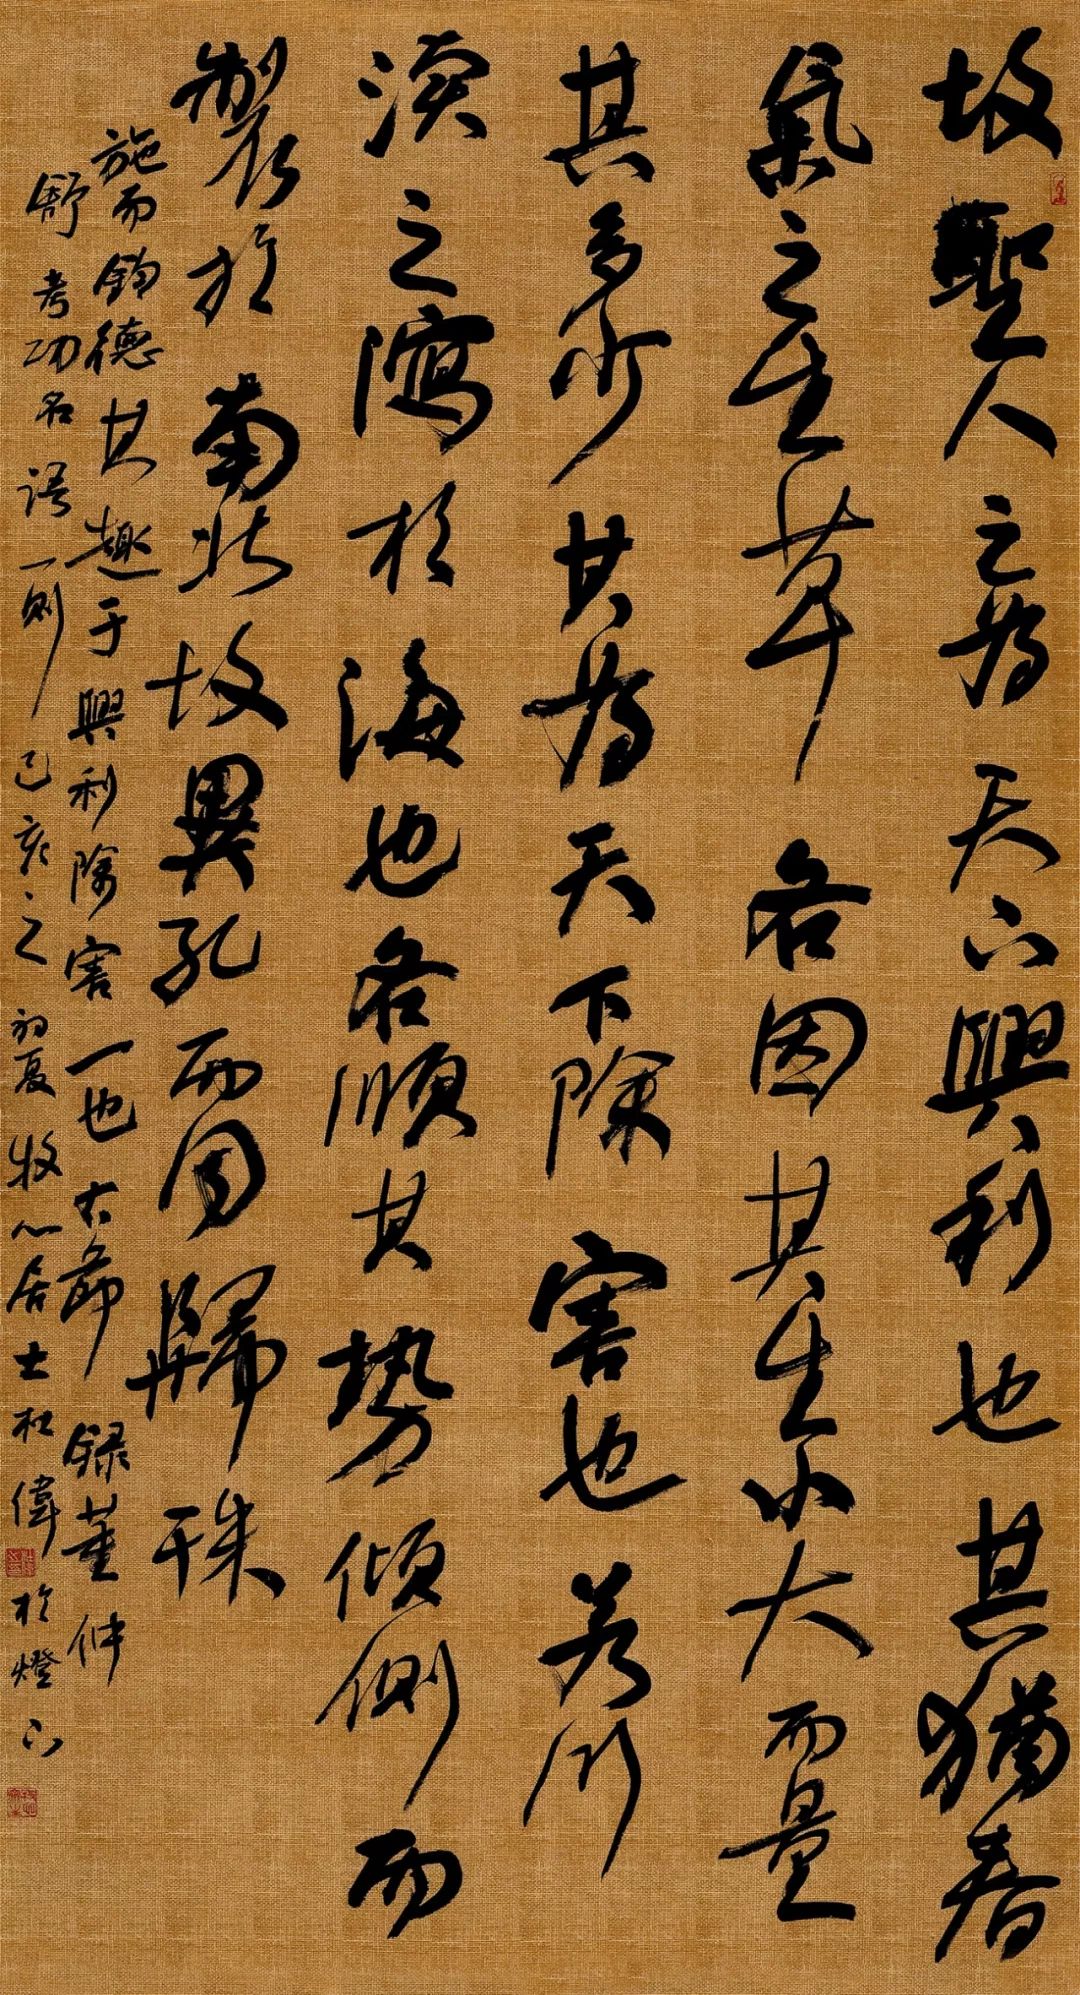 故聖人之為天下興利也其猶春
氣之生草各因其生小大而量
其多少其為天下除害也若川
瀆之瀉於海也各順其勢傾側而
製於南北故異孔而同歸殊
施而鈞德其趣于興利除害一也右節錄董仲
舒考功名語一則己亥之初夏牧心居士杜偉於燈下